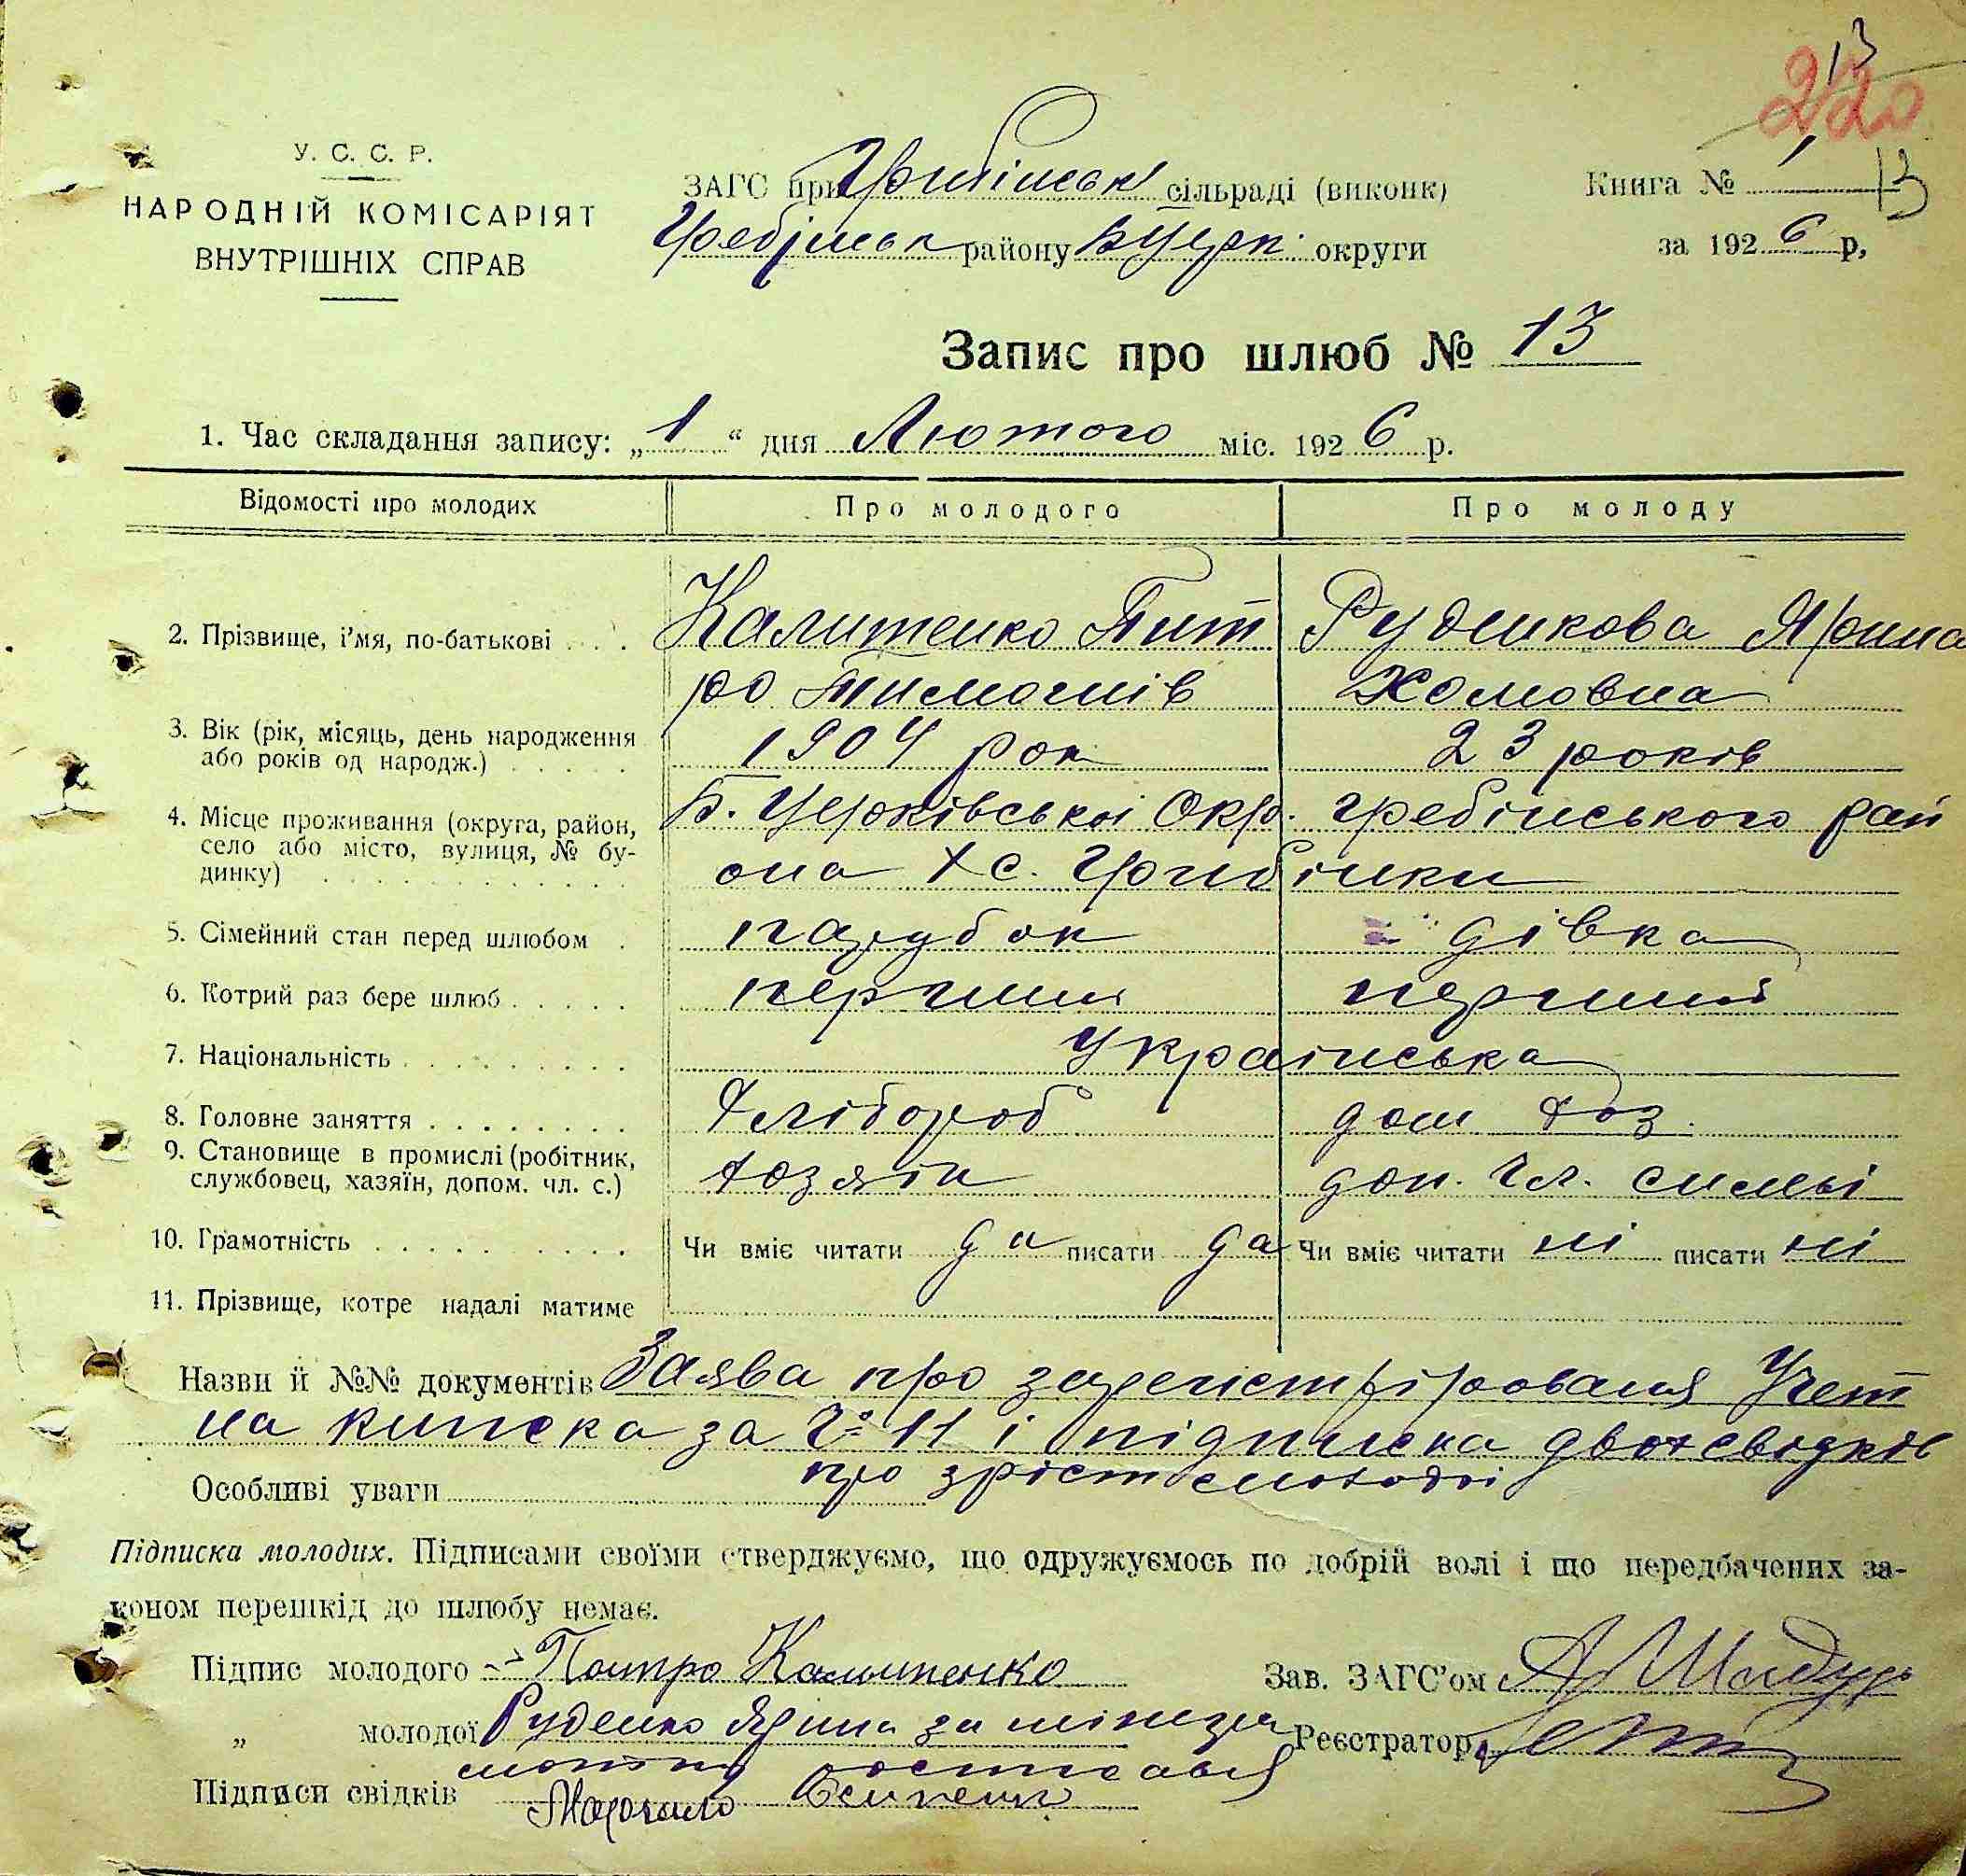 13
220
У. С. С. Р.
НАРОДНІЙ КОМІСАРІЯТ
ВНУТРІШНІХ СПРАВ
ЗАГС при Грибінськ сільраді (виконк)
Гребінськ району БЦерк. округи
Книга № 1
13
за 1926 р,
Запис про шлюб № 13
1. Час складання запису: „1“ дня Лютого міс. 1926 р.
Відомості про молодих
Про молодого
Про молоду
2. Прізвище, і’мя, по-батькові
Калитенко Пит
Руденкова Ярина
ро Тимошів
Хомовна
3. Вік (рік, місяць, день народження
або років од народж.)
1904 рок
23 років
4. Місце проживання (округа, район,
село або місто, вулиця, № бу-
динку)
Б. Церковівської Окр. гребінського рай
она х с. Грибінки
5. Сімейний стан перед шлюбом
парубок
дівка
6. Котрий раз бере шлюб
перший
перший
7. Національність
Українська
8. Головне заняття
Хлібороб
дом хоз.
9. Становище в промислі (робітник,
службовец, хазяїн, допом. чл. с.)
хозяін
доп. чл. симьі
10. Грамотність
Чи вміє читати да писати да
Чи вміє читати ні писати ні
11. Прізвище, котре надалі матиме
Назви й №№ документів Заява про зарегистріровання Учет
на книжка за № 11 і підписка двох свідків
про зріст молодоі
Особливі уваги
Підписка молодих. Підписами своїми стверджуємо, що одружуємось по добрій волі і що передбачених за-
коном перешкід до шлюбу немає.
Підпис молодого Питро Калитенко
Зав. ЗАГС’ом
„ молодої Руденко Ярина за
Реєстратор
Підписи свідків